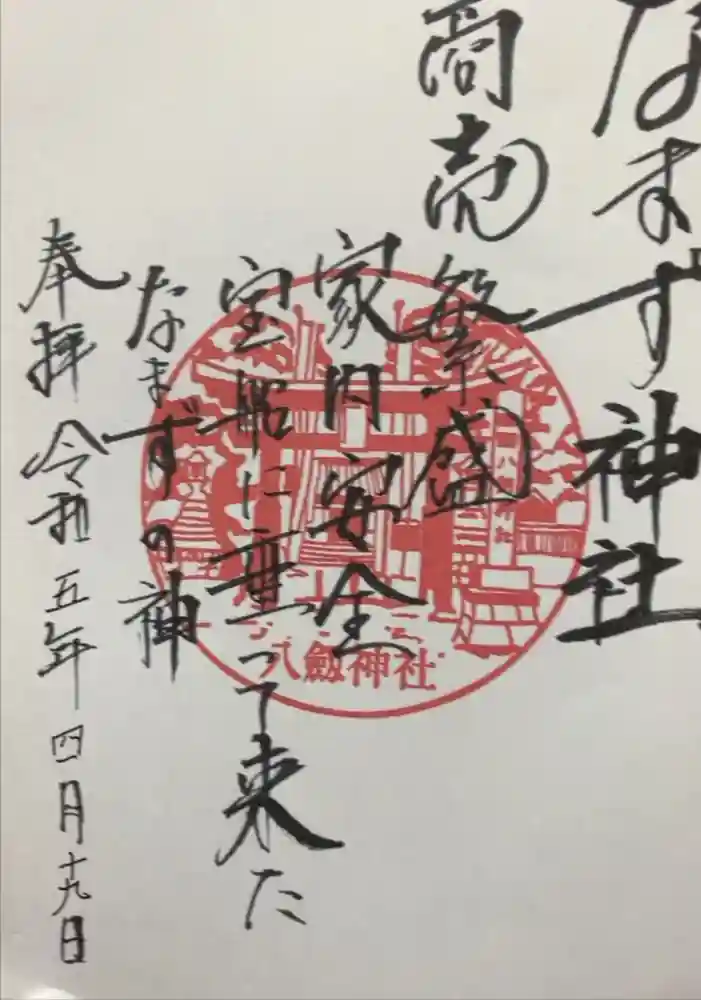 なまず神社
商売繁盛
家内安全
宝船に乗って来た
なまずの神
奉拝 令和五年四月十九日
八剱神社